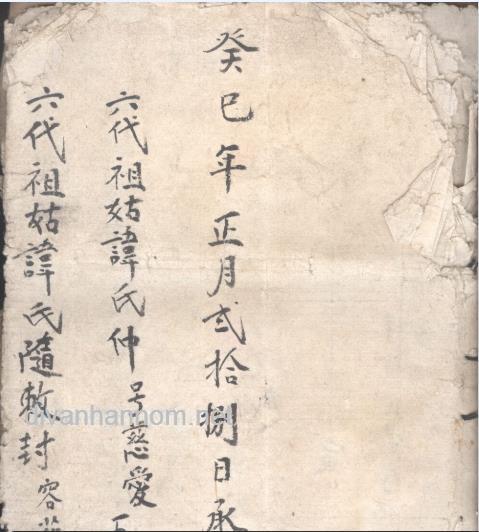 癸巳年正月弍拾捌日承
六代祖姑諱氏仲号慈愛
六代祖姑諱氏隨敕封容
divanhannom.net